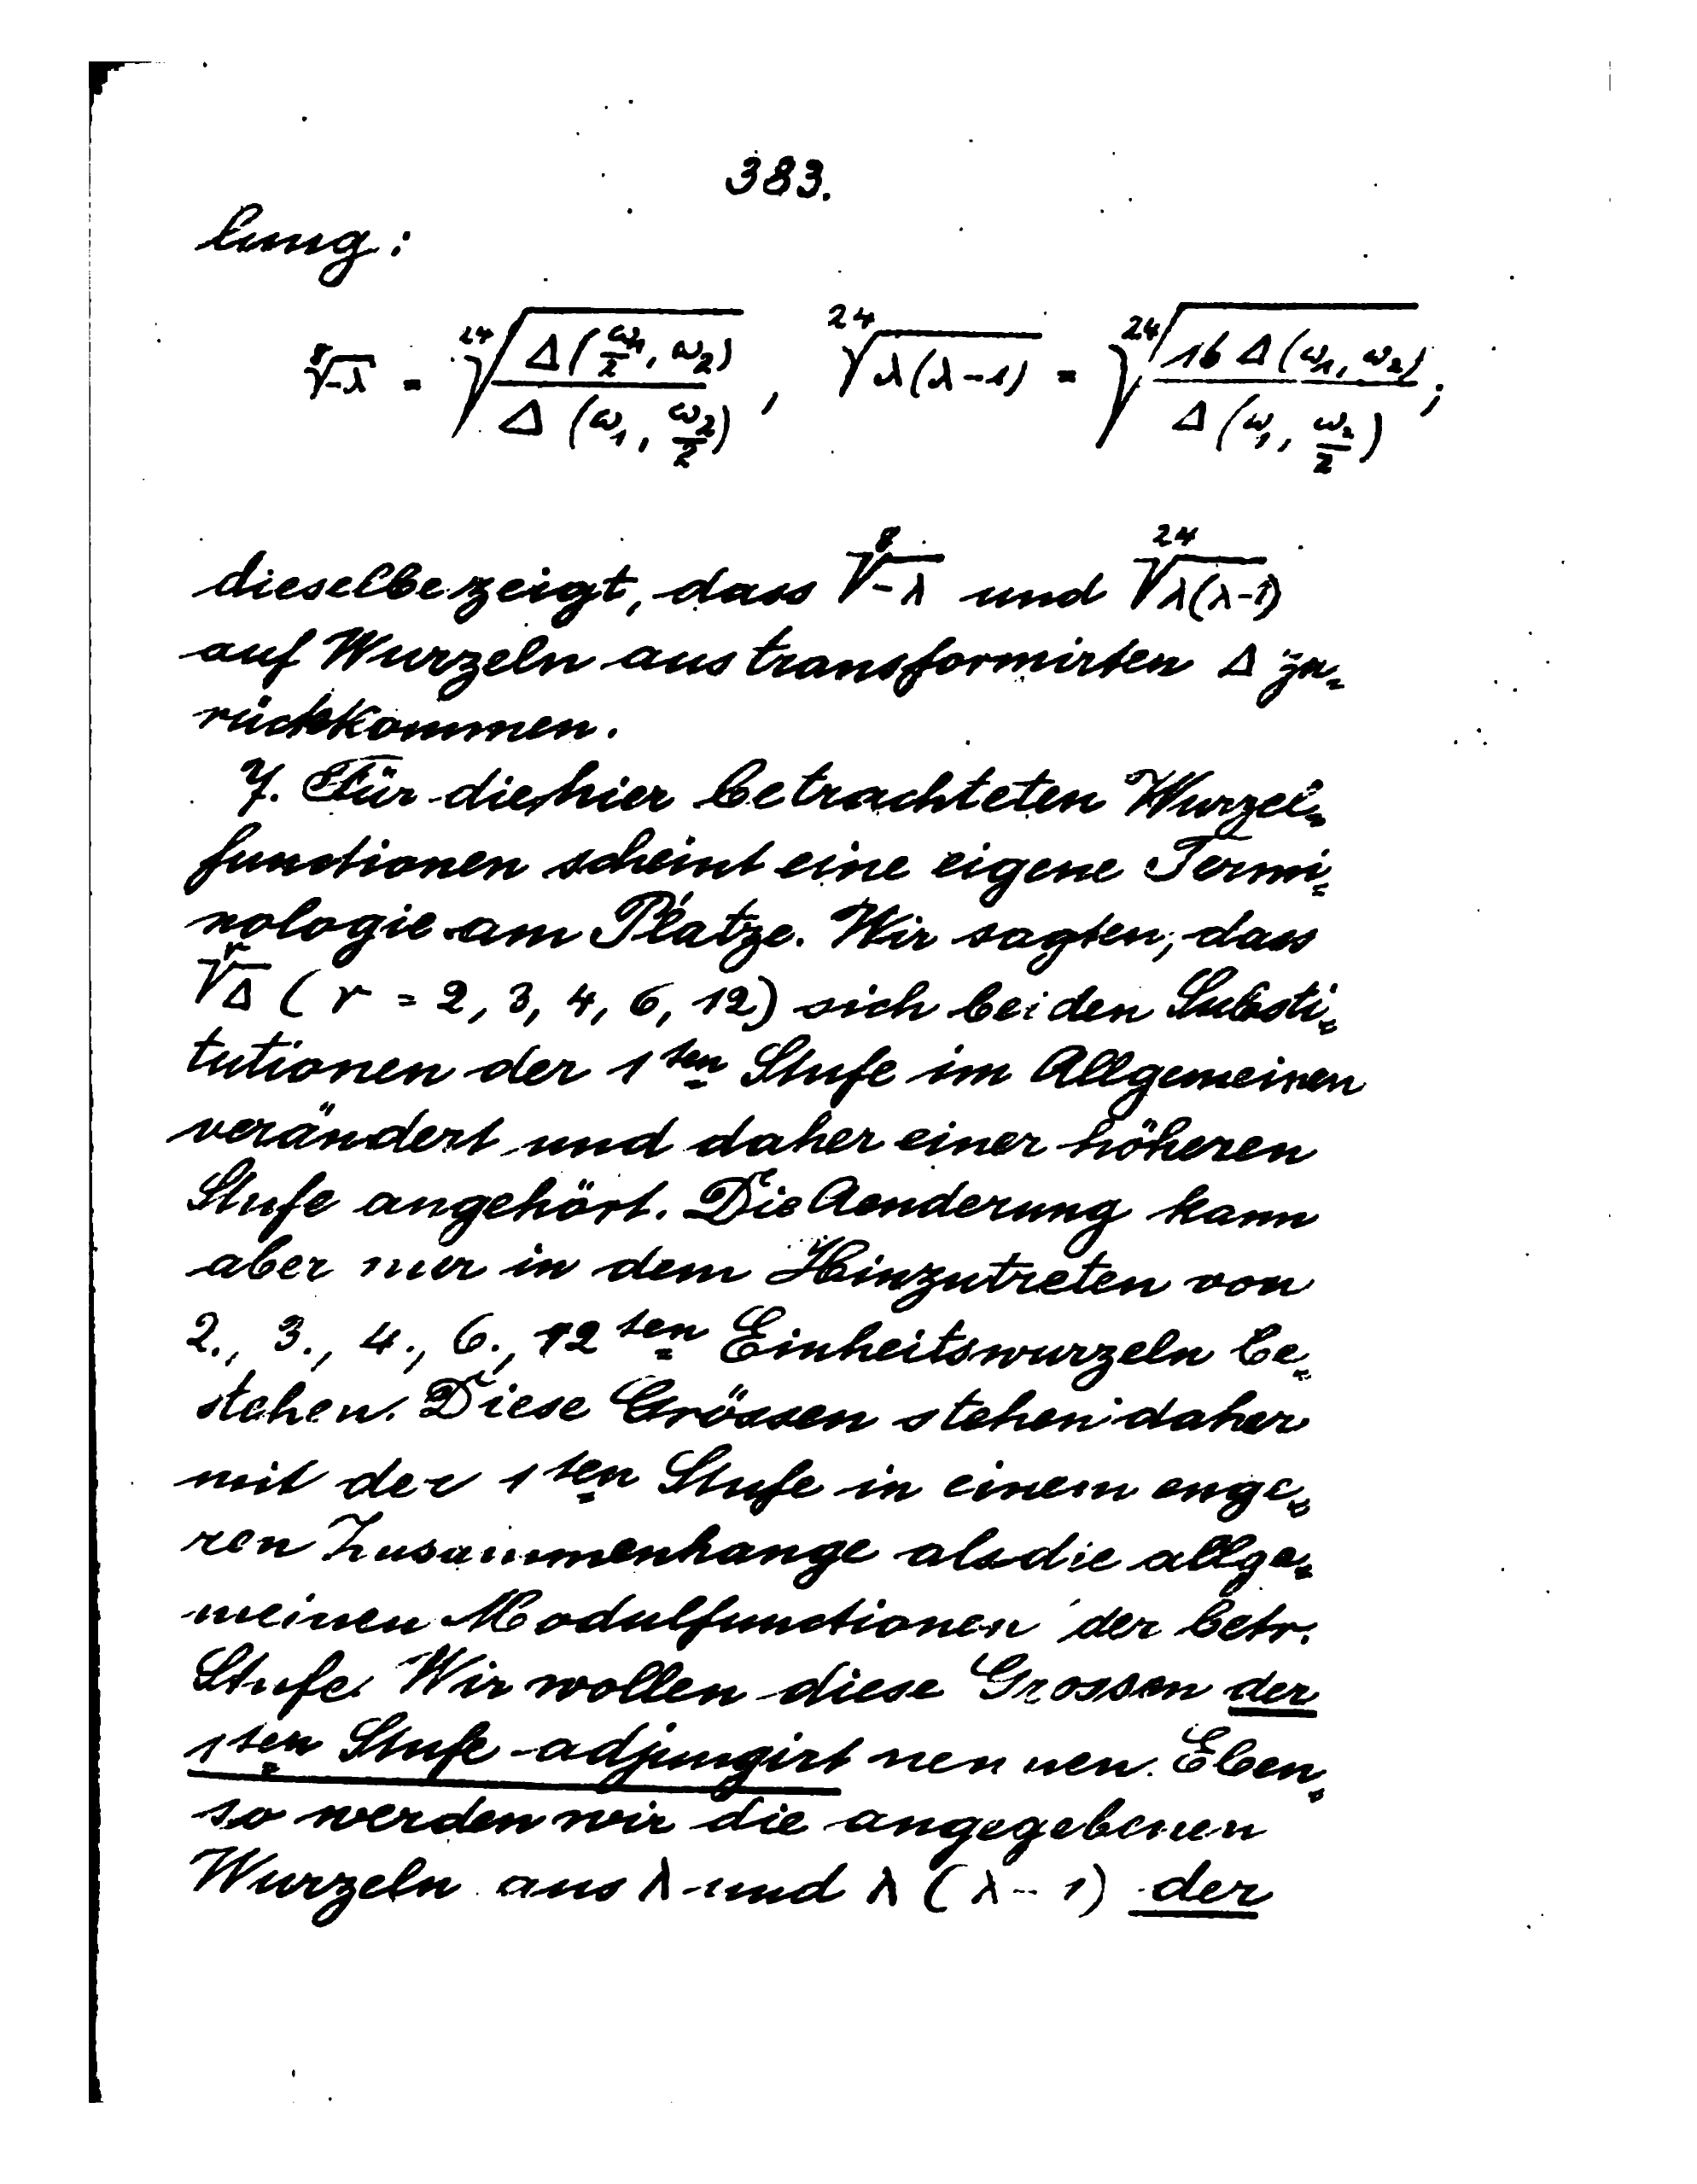 383.
lung:
$\sqrt[8]{-\lambda} = \sqrt[24]{\frac{\Delta(\frac{\omega_1}{2}, \omega_2)}{\Delta(\omega_1, \frac{\omega_2}{2})}}, \sqrt[24]{\lambda(\lambda-1)} = \sqrt[24]{\frac{16 \Delta(\omega_1, \omega_2)}{\Delta(\omega_1, \frac{\omega_2}{2})}};$
dieselbe zeigt, dass $\sqrt[8]{-\lambda}$ und $\sqrt[24]{\lambda(\lambda-1)}$
auf Wurzeln aus transformirten Δ zu=
rückkommen.
7. Für die hier betrachteten Wurzel=
functionen scheint eine eigene Termi=
nologie am Platze. Wir sagten, dass
$\sqrt[r]{\Delta}$ (r = 2, 3, 4, 6, 12) sich bei den Substi=
tutionen der 1ten Stufe im Allgemeinen
verändert und daher einer höheren
Stufe angehört. Die Aenderung kann
aber nur in dem Hinzutreten von
2., 3., 4., 6., 12ten Einheitswurzeln be=
stehen. Diese Grössen stehen daher
mit der 1ten Stufe in einem enge=
ren Zusammenhange als die allge=
meinen Modulfunctionen der betr.
Stufe. Wir wollen diese Grossen der
1ten Stufe adjungirt nennen. Eben=
so werden wir die angegebenen
Wurzeln aus λ und λ (λ - 1) der